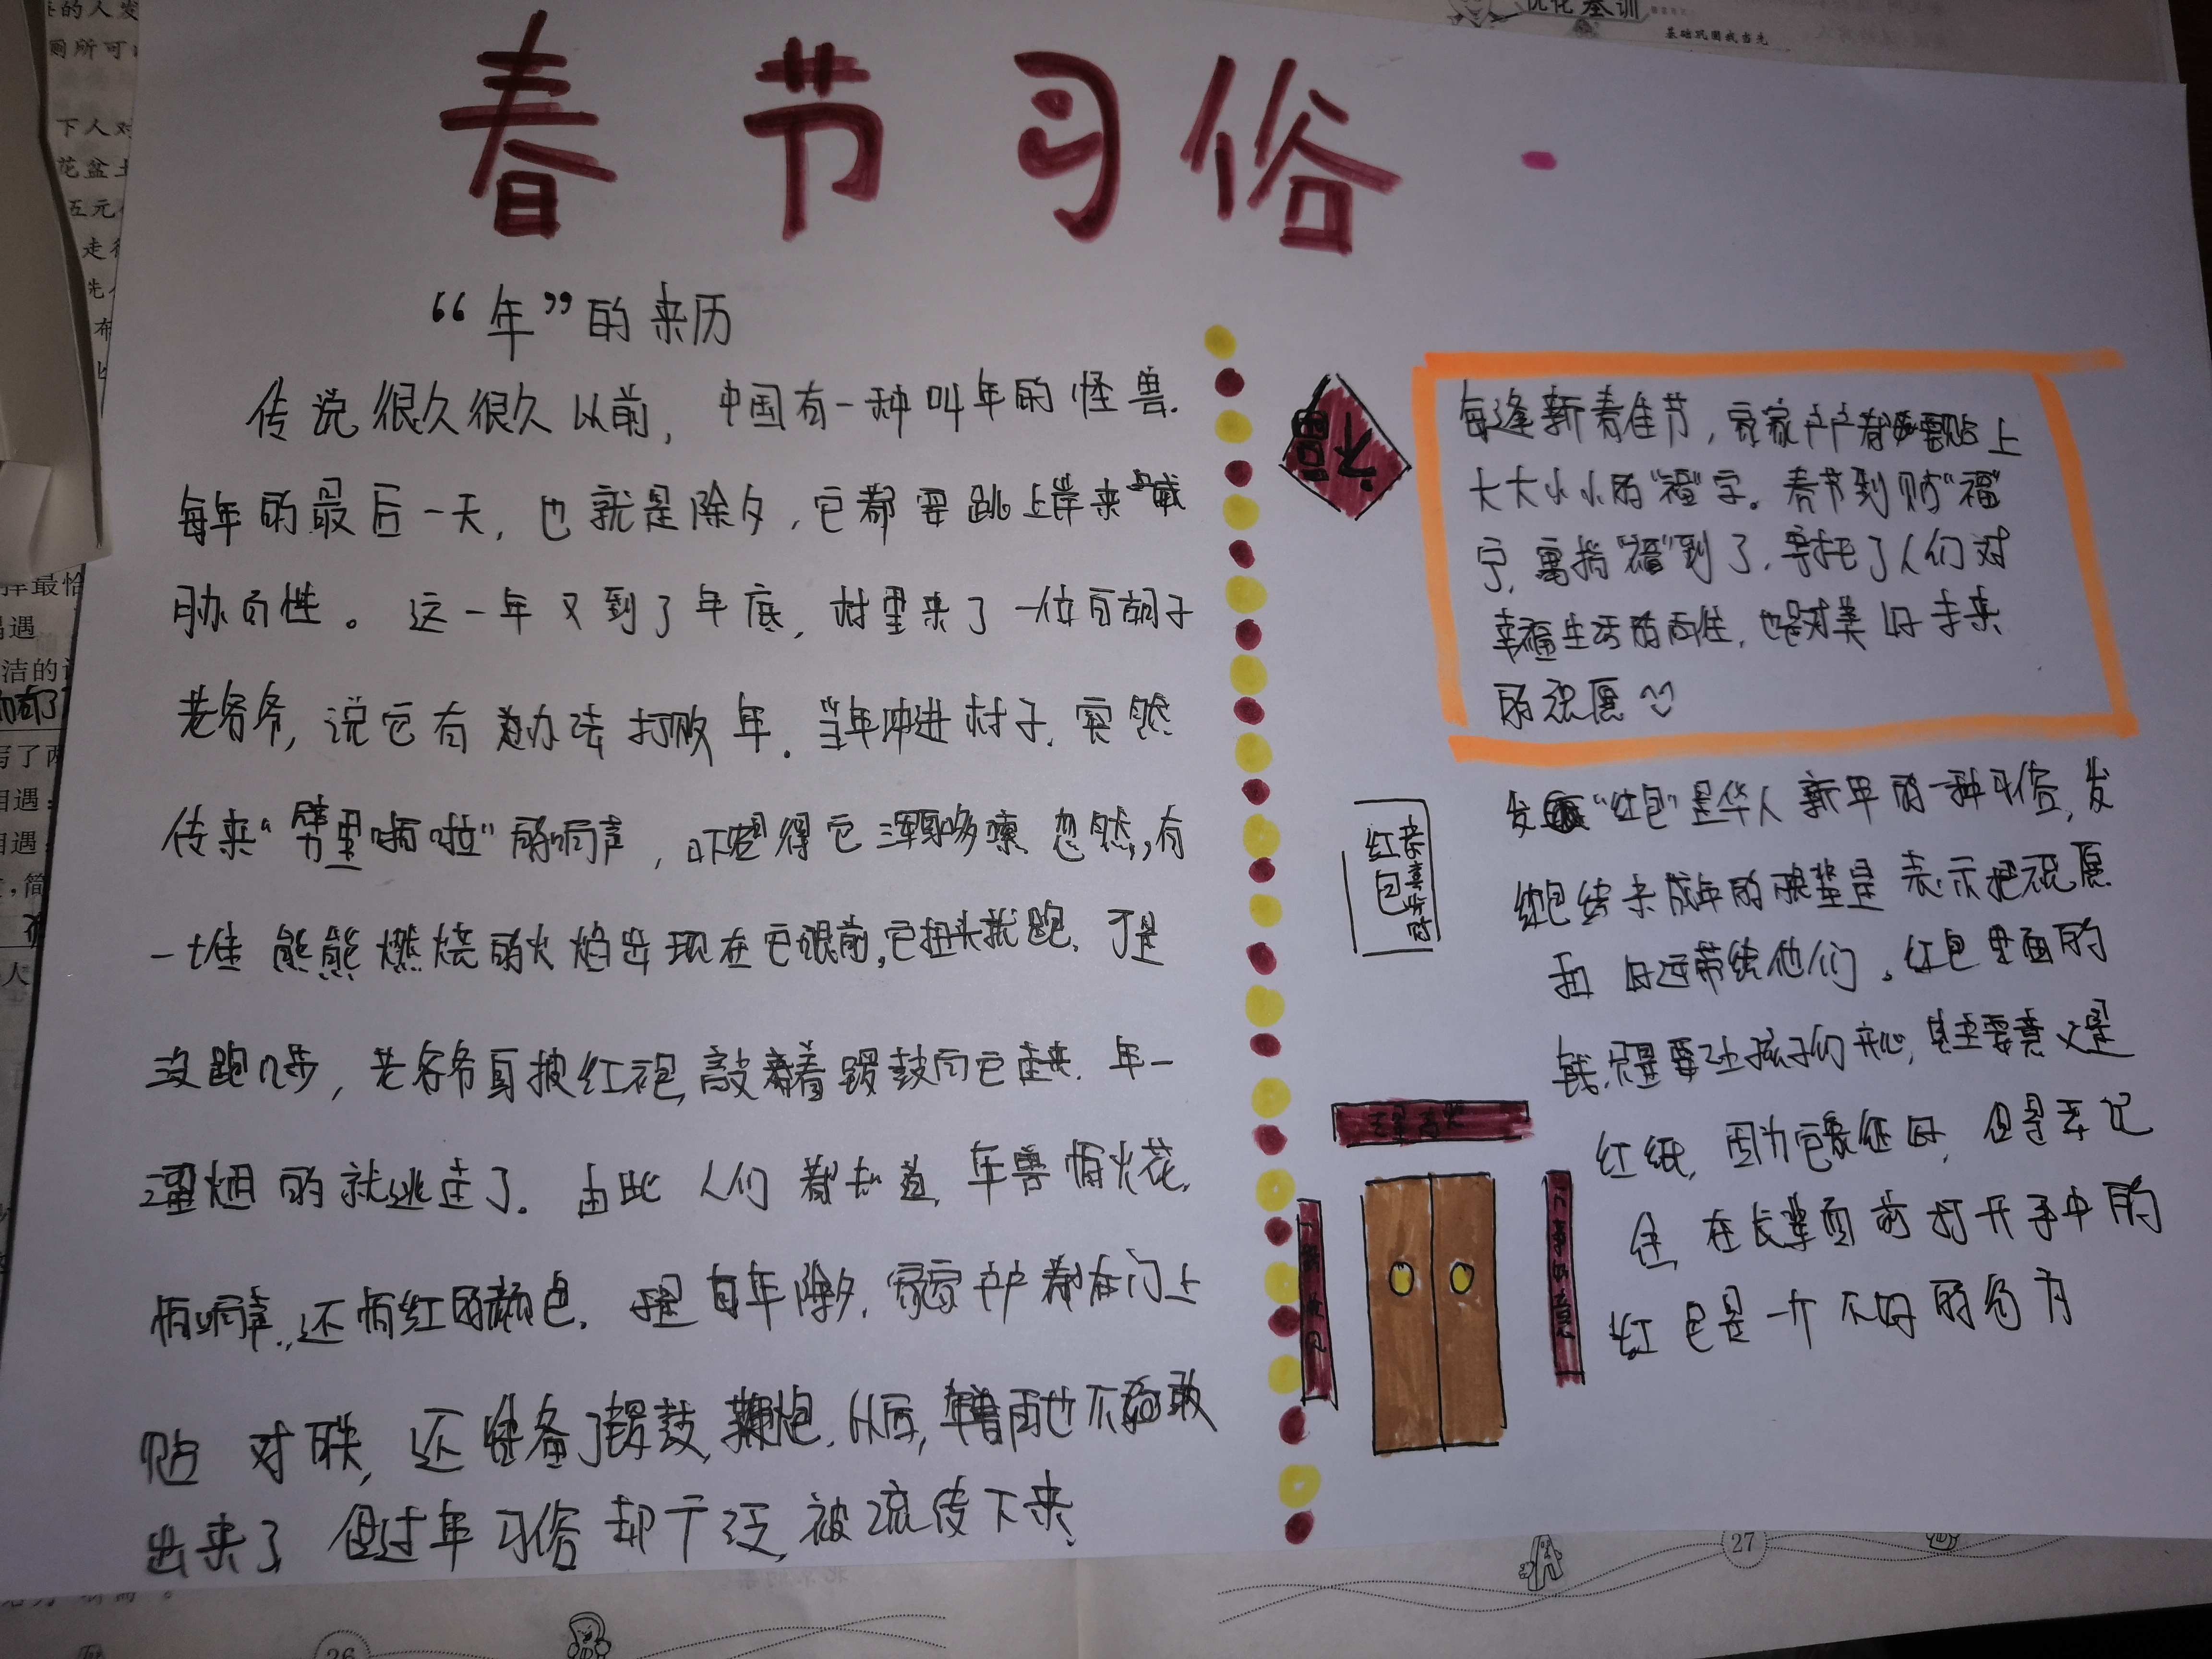 春节习俗
“年”的来历
传说很久很久以前，中国有一种叫年的怪兽.
每年的最后一天，也就是除夕，它都要跳上岸来喊
胁百性。这一年又到了年底，村里来了一位白胡子
老爷爷，说它有办法打败年.当年冲进村子.突然
传来“劈里啪啦”的响声，吓得它浑身哆嗦 忽然，有
一堆熊熊燃烧的火焰出现在它眼前，它扭头就跑.于是
没跑几步，老爷爷身披红袍，敲着锣鼓向它走来.年一
溜烟的就逃走了.由此人们都知道，年兽怕火花，
怕响声，还怕红的颜色.于是每年除夕，家家户户都在门上
贴对联，还准备了锣鼓，鞭炮.以后，年兽再也不敢
出来了 但过年习俗却广泛被流传下来.
福
每逢新春佳节，家家户户都要贴上
大大小小的“福”字。春节到贴“福”
字，寓指“福”到了.寄托了人们对
幸福生活的向往，也是对美好未来
的祝愿
红包
恭喜发财
发“红包”是华人新年的一种习俗，发
红包给未成年的晚辈是表示把祝愿
和好运带给他们。红包里面的
钱，只是要让孩子们开心，其主要意义是
红纸，因为它象征好，但是弄记
住在长辈面前打开手中的
红包是一个不好的行为
万事如意
优化基训
基础巩固我当先
26
27